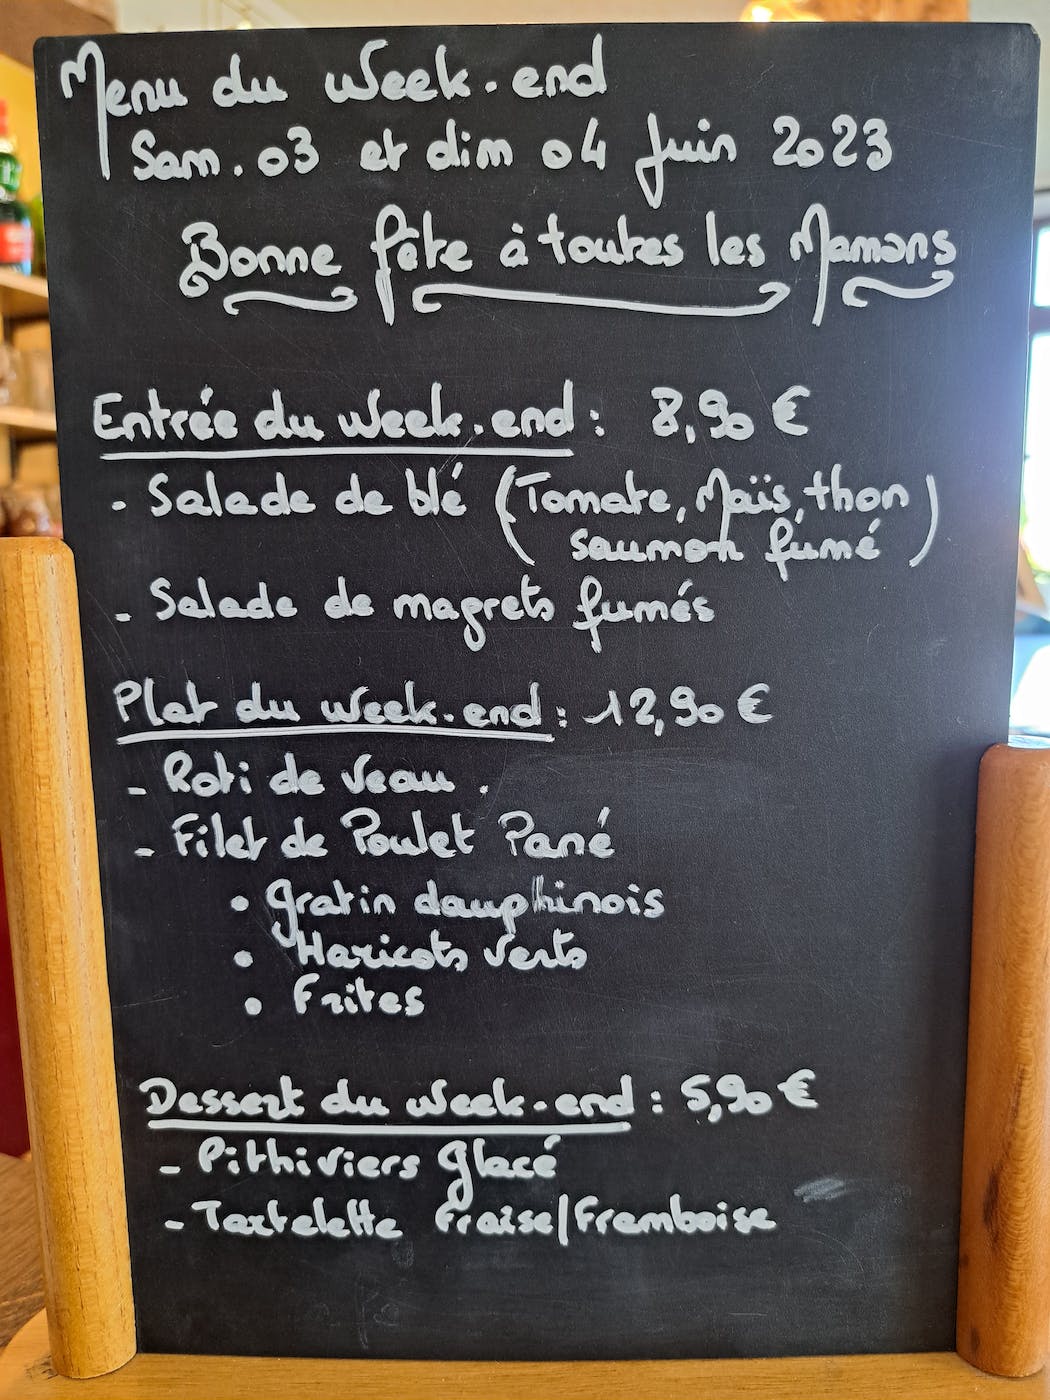 Menu du Week-end
Sam. 03 et dim 04 Juin 2023
Bonne fête à toutes les Mamans
Entrée du Week-end : 8,90 €
- Salade de blé (Tomate, Maïs, thon
saumon fumé)
- Salade de magrets fumés
Plat du week-end : 12,90 €
- Roti de Veau.
- Filet de Poulet Pané
• gratin dauphinois
• Haricots verts
• Frites
Dessert du Week-end : 5,90 €
- Pithiviers glacé
- Tartelette Fraise/Framboise